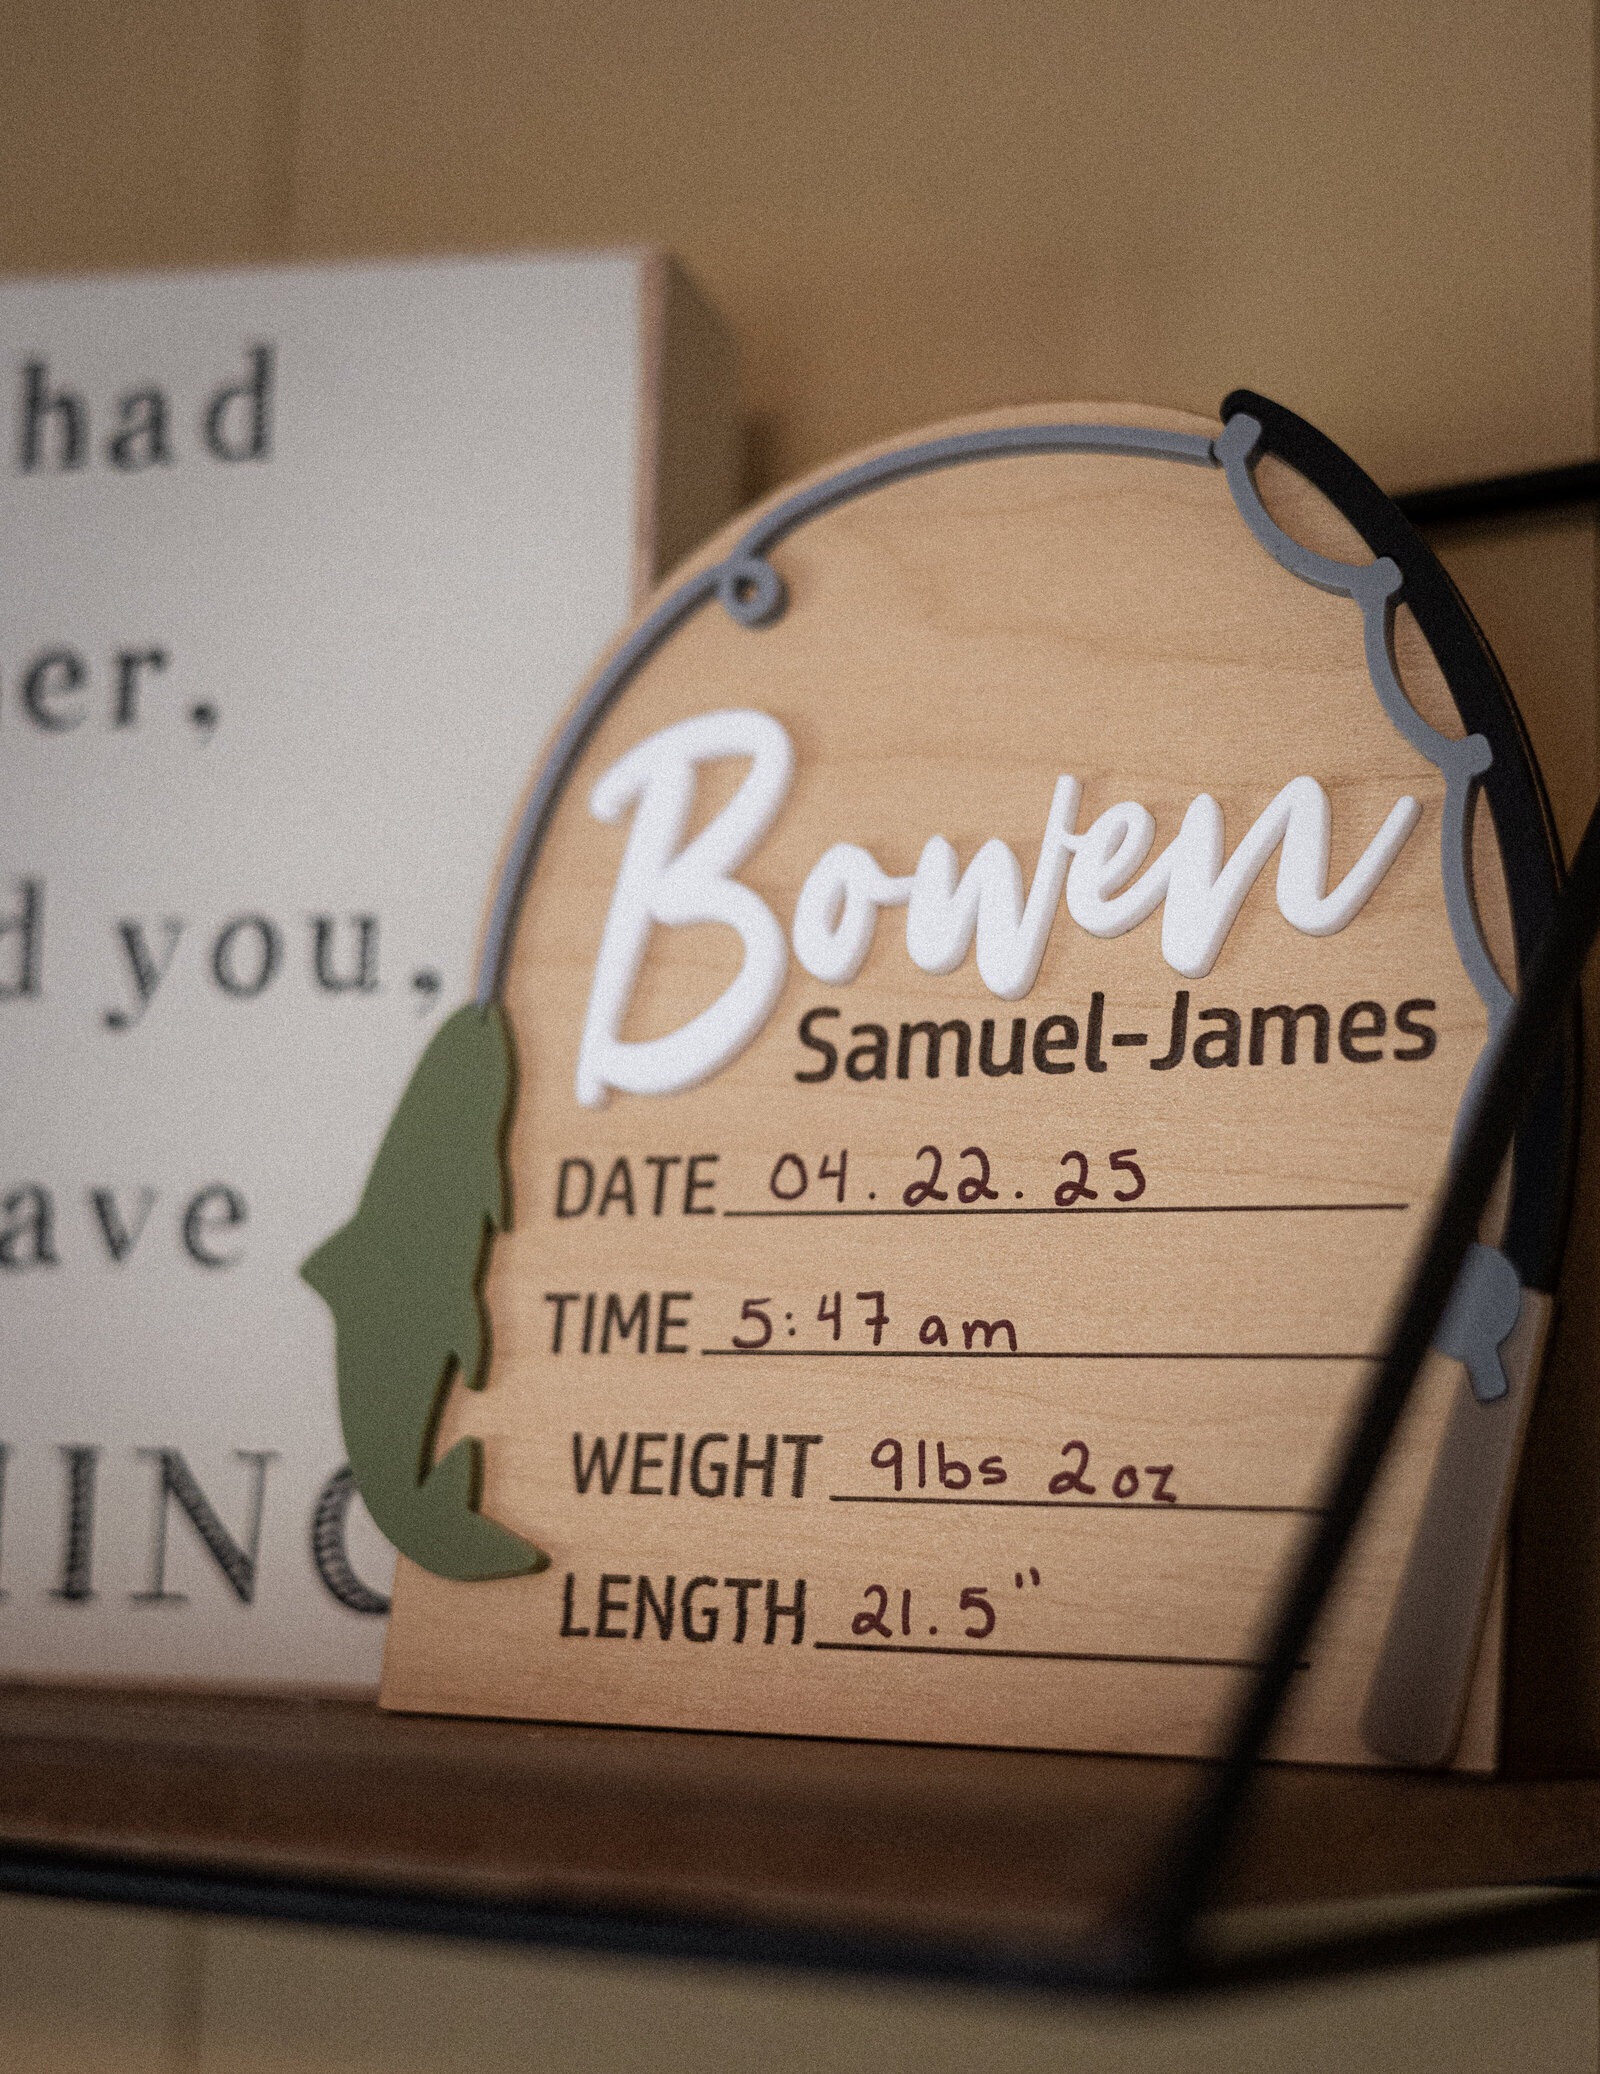 had
er,
d you,
ave
Bowen
Samuel-James
DATE 04.22.25
TIME 5:47 am
WEIGHT 9lbs 2oz
LENGTH 21.5"